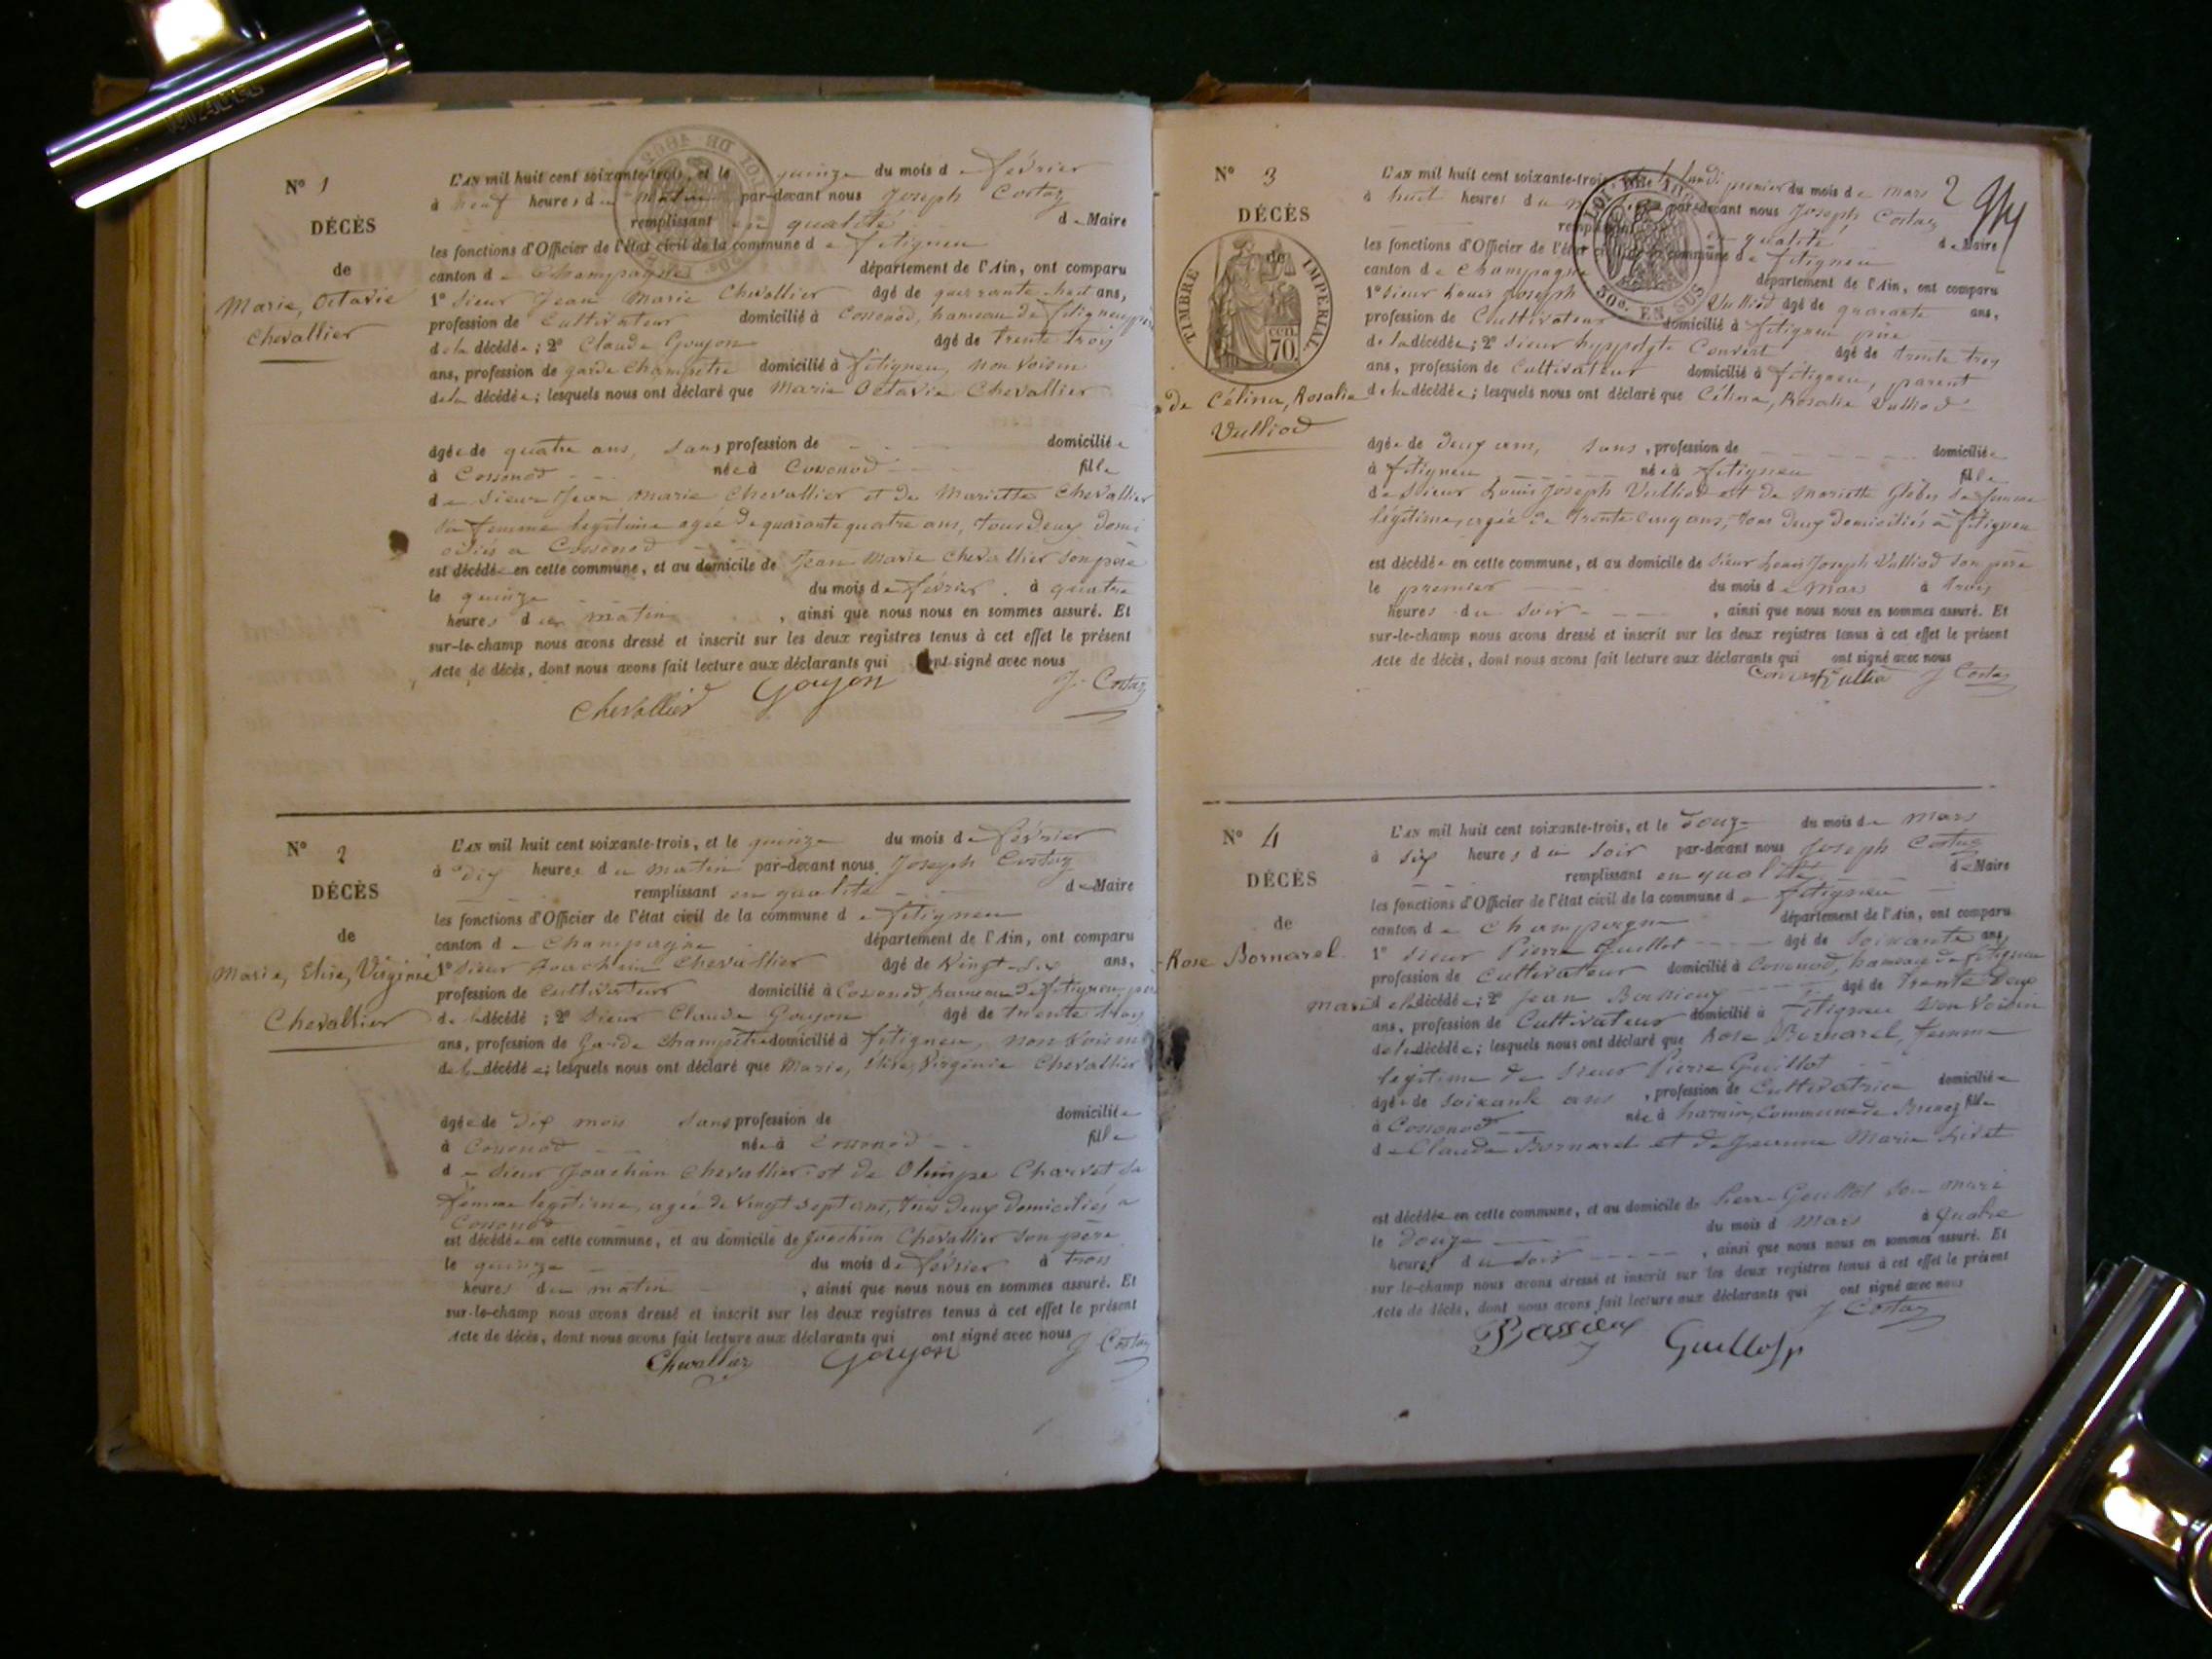 N° 1
DÉCÈS
de
Marie, Octavie
Chevallier
L'AN mil huit cent soixante-trois, et le quinze du mois de février
à neuf heures du matin par-devant nous Joseph Costaz
remplissant en qualité de Maire
les fonctions d'Officier de l'état civil de la commune de fitignieu
canton de Champagne département de l'Ain, ont comparu
1° Sieur Jean Marie Chevallier âgé de quarante huit ans,
profession de Cultivateur domicilié à Cossonod, hameau de fitignieu, père
de la décédée; 2° Claude Goujon âgé de trente trois
ans, profession de garde Champêtre domicilié à fitignieu, non Voisin
de la décédée; lesquels nous ont déclaré que Marie Octavie Chevallier
âgée de quatre ans, sans profession de domiciliée
à Cossonod née à Cossonod fille
de Sieur Jean Marie Chevallier et de Mariette Chevallier
sa femme legitime agée de quarante quatre ans, tous deux domi
ciliés a Cossonod
est décédée en cette commune, et au domicile de Jean Marie Chevallier son père
le quinze du mois de février à quatre
heures du matin, ainsi que nous nous en sommes assuré. Et
sur-le-champ nous avons dressé et inscrit sur les deux registres tenus à cet effet le présent
Acte de décès, dont nous avons fait lecture aux déclarants qui ont signé avec nous
Chevallier Goujon J. Costaz
N° 2
DÉCÈS
de
Marie, Elise, Virginie
Chevallier
L'AN mil huit cent soixante-trois, et le quinze du mois de février
à dix heures du matin par-devant nous Joseph Costaz
remplissant en qualité de Maire
les fonctions d'Officier de l'état civil de la commune de fitignieu
canton de Champagne département de l'Ain, ont comparu
1° Sieur Joachim Chevallier âgé de Vingt-six ans,
profession de Cultivateur domicilié à Cossonod, hameau de fitignieu, père
de la décédé; 2° Sieur Claude Goujon âgé de trente trois
ans, profession de Garde Champêtre domicilié à fitignieu, non Voisin
de la décédée; lesquels nous ont déclaré que Marie, Elise, Virginie Chevallier
âgée de dix mois sans profession de domiciliée
à Cossonod née à Cossonod fille
de Sieur Joachim Chevallier et de Olimpe Charvet sa
femme legitime, agée de Vingt sept ans, tous deux domiciliés a
Cossonod
est décédée en cette commune, et au domicile de Joachim Chevallier son père
le quinze du mois de février à trois
heures du matin, ainsi que nous nous en sommes assuré. Et
sur-le-champ nous avons dressé et inscrit sur les deux registres tenus à cet effet le présent
Acte de décès, dont nous avons fait lecture aux déclarants qui ont signé avec nous
Chevallier Goujon J Costaz
2
N° 3
DÉCÈS
de
TIMBRE IMPERIAL
cen 70.
de Célina, Rosalie
Vulliod
LOI DE 50c. EN SUS
L'AN mil huit cent soixante-trois premier du mois de mars
à huit heures du par-devant nous Joseph Costaz
remplissant en qualité de Maire
les fonctions d'Officier de l'état civil de la commune de fitignieu
canton de Champagne département de l'Ain, ont comparu
1° Sieur Louis Joseph Vulliod âgé de quarante ans,
profession de Cultivateur domicilié à fitignieu père
de la décédée; 2° Sieur hyppolyte Convert âgé de trente trois
ans, profession de Cultivateur domicilié à fitignieu, parent
de la décédée; lesquels nous ont déclaré que Célina, Rosalie Vulliod
âgée de deux ans, sans, profession de domiciliée
à fitignieu née à fitignieu fille
de Sieur Louis Joseph Vulliod et de Mariette sa femme
légitime, agée de trente cinq ans, tous deux domiciliés à fitignieu
est décédée en cette commune, et au domicile de Sieur Louis Joseph Vulliod son père
le premier du mois de Mars à trois
heures du Soir, ainsi que nous nous en sommes assuré. Et
sur-le-champ nous avons dressé et inscrit sur les deux registres tenus à cet effet le présent
Acte de décès, dont nous avons fait lecture aux déclarants qui ont signé avec nous
J Costaz
N° 4
DÉCÈS
de
Rose Bornarel
L'AN mil huit cent soixante-trois, et le douze du mois de mars
à six heures du soir par-devant nous Joseph Costaz
remplissant en qualité de Maire
les fonctions d'Officier de l'état civil de la commune de fitignieu
canton de Champagne département de l'Ain, ont comparu
1° Sieur Pierre Guillot âgé de soixante ans,
profession de Cultivateur domicilié à Cossonod, hameau de fitignieu
mari de la décédée; 2° Jean Bassieux âgé de trente deux
ans, profession de Cultivateur domicilié à fitignieu non Voisin
de la décédée; lesquels nous ont déclaré que Rose Bornarel, femme
legitime de Sieur Pierre Guillot
âgée de soixante ans, profession de Cultivatrice domiciliée
à Cossonod née à Commune de fille
de Claude Bornarel et de Jeanne Marie
est décédée en cette commune, et au domicile de Pierre Guillot son mari
le douze du mois d Mars à quatre
heures du soir, ainsi que nous nous en sommes assuré. Et
sur le-champ nous avons dressé et inscrit sur les deux registres tenus à cet effet le présent
Acte de décès, dont nous avons fait lecture aux déclarants qui ont signé avec nous
J Costaz
Bassieux Guillot p